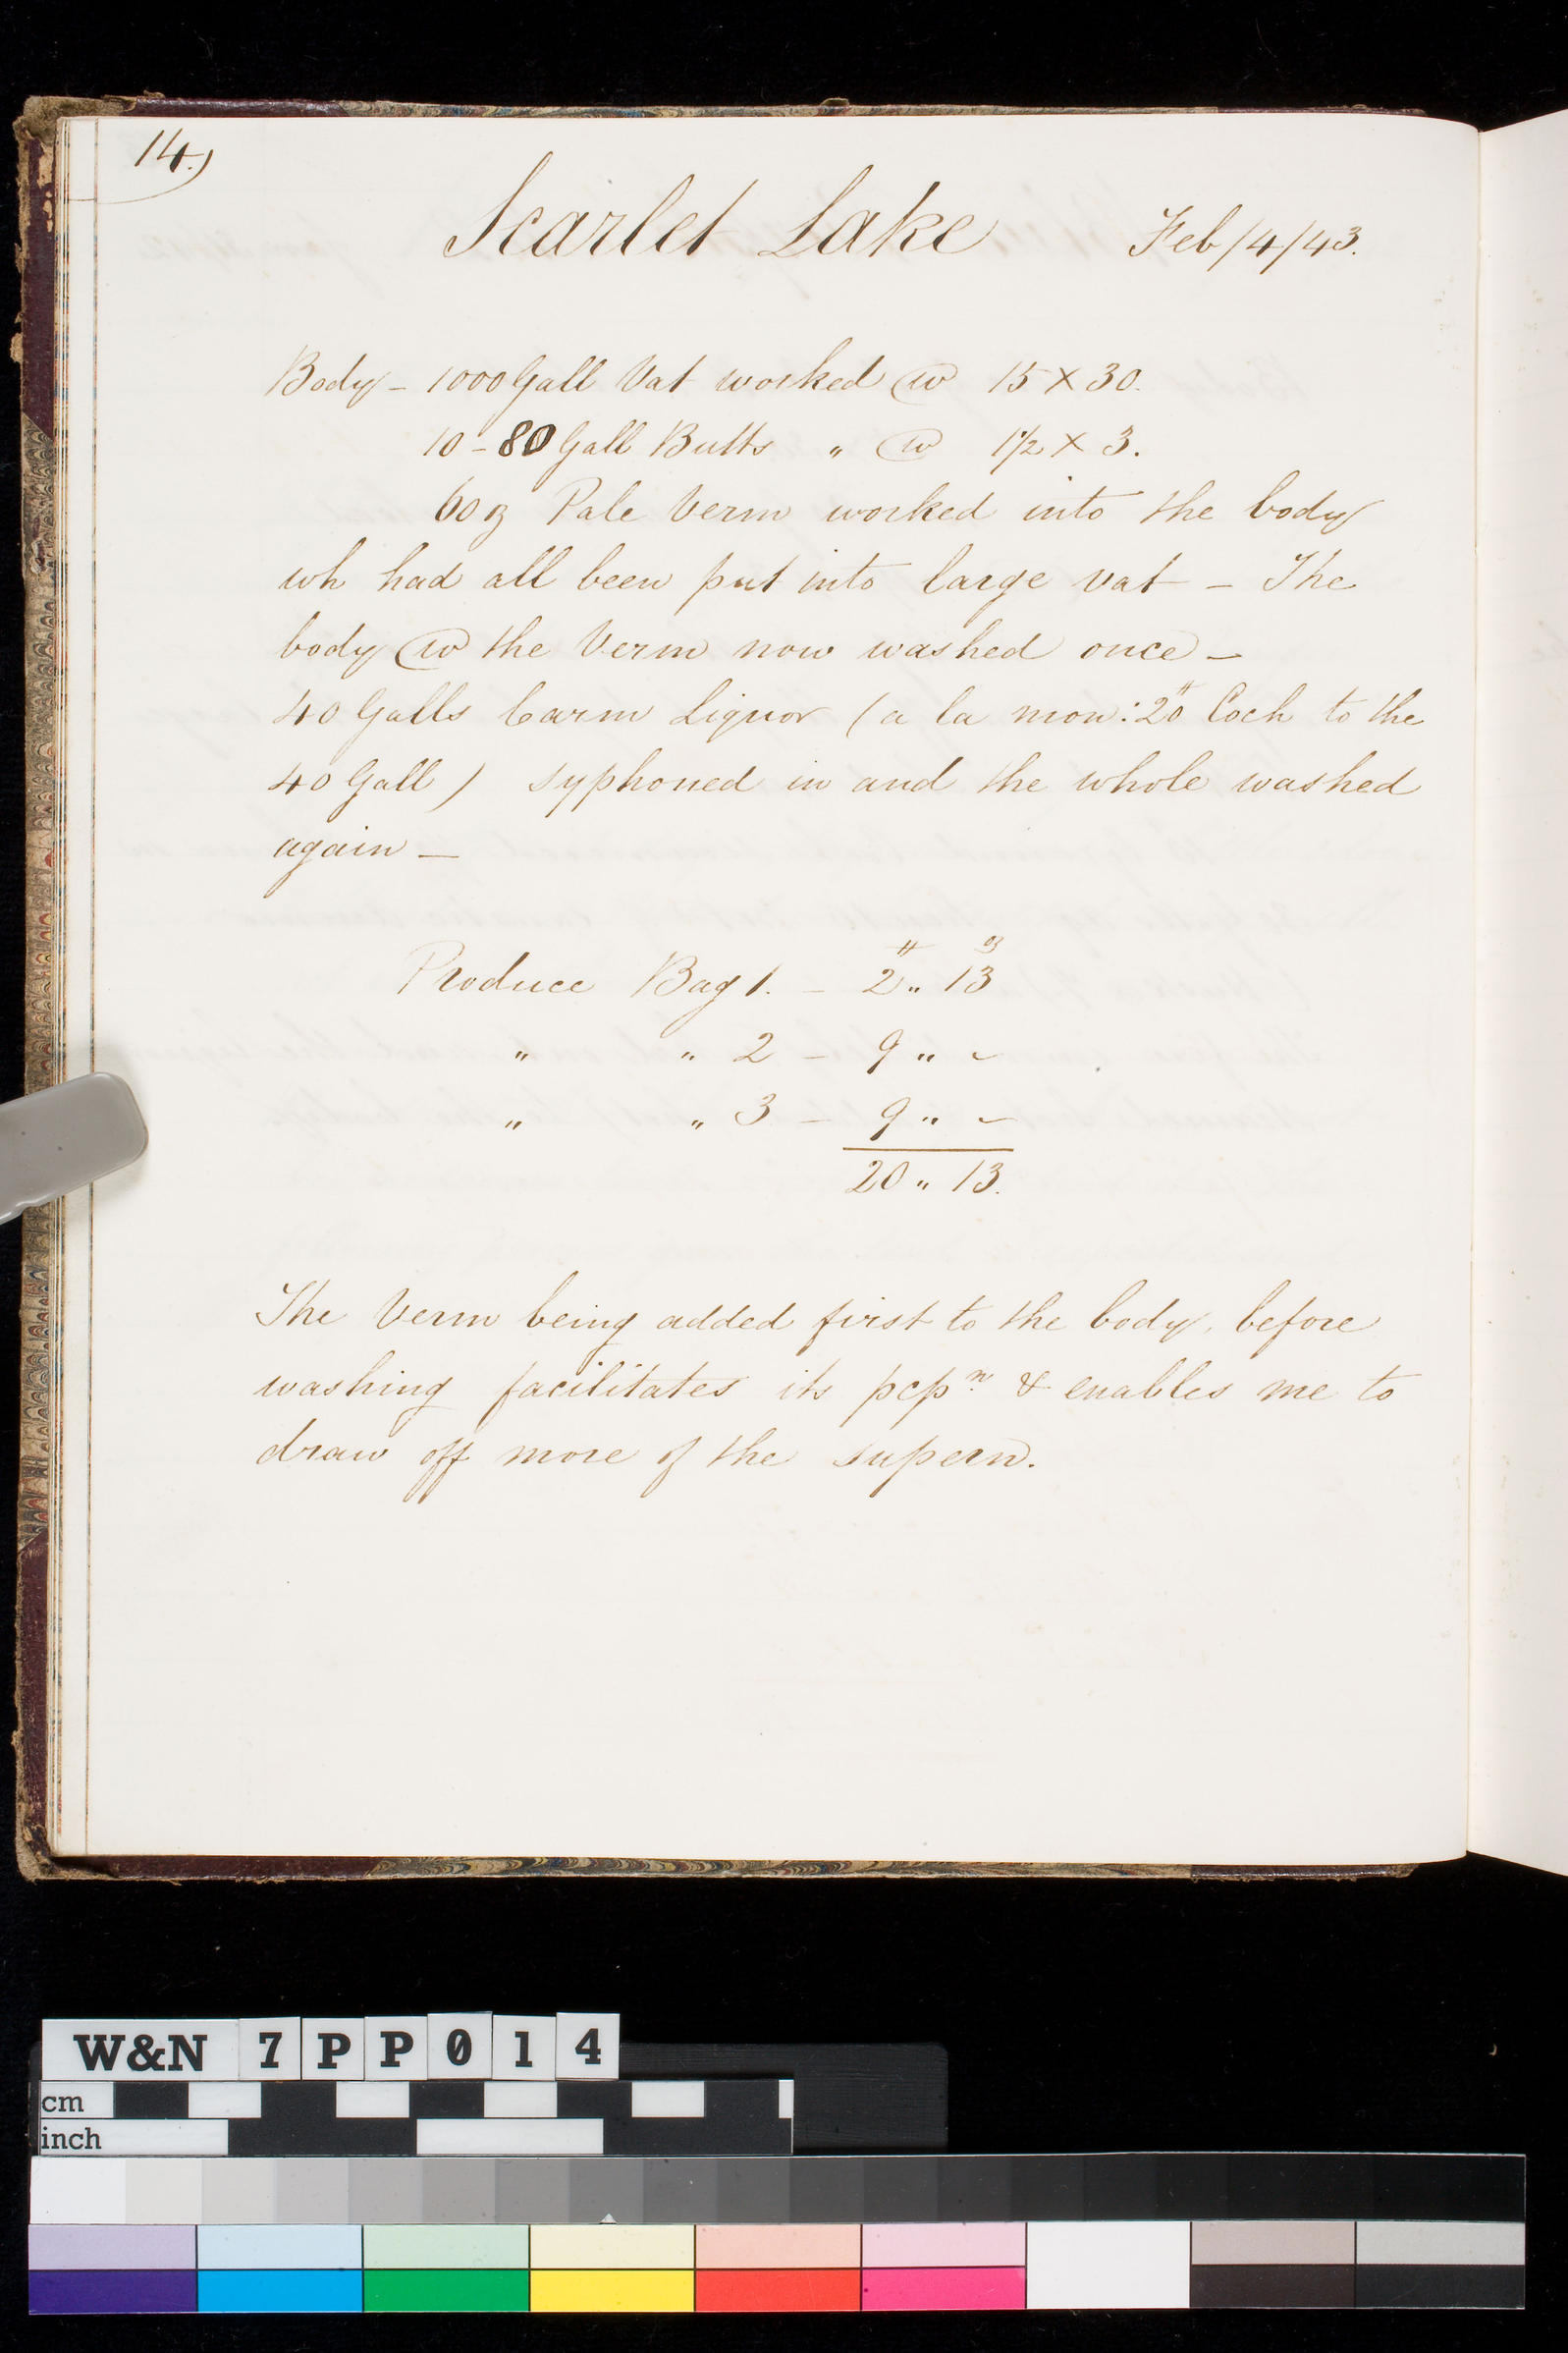 14.)
Scarlet Lake Feb/4/43.
Body – 1000 Gall Vat worked @ 15 × 30.
10 – 80 Gall Butts " @ 1½ × 3.
60 oz Pale Verm worked into the body
wh had all been put into large vat – The
body @ the Verm now washed once –
40 Galls Carm Liquor (a la mon: 20# Coch to the
40 Gall) syphoned in and the whole washed
again –
# oz
Produce Bag 1. – 2 " 13
" " 2 – 9 " ~
" " 3 – 9 " ~
20 " 13.
The Verm being added first to the body, before
washing facilitates its pcpn. & enables me to
draw off more of the supern.
W&N 7PP014
cm
inch